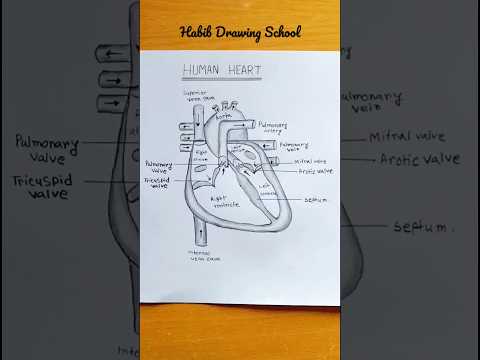 Habib Drawing School
HUMAN HEART
Superior
vena cava
Aorta
Pulmonary
artery
Pulmonary
vein
Right
Left
Pulmonary
valve
Mitral valve
Arotic valve
Tricuspid
valve
Left
ventricle
Right
ventricle
Septum.
vena cava
Pulmonary
valve
Tricuspid
valve
Pulmonary
vein
Mitral valve
Arotic valve
Septum.